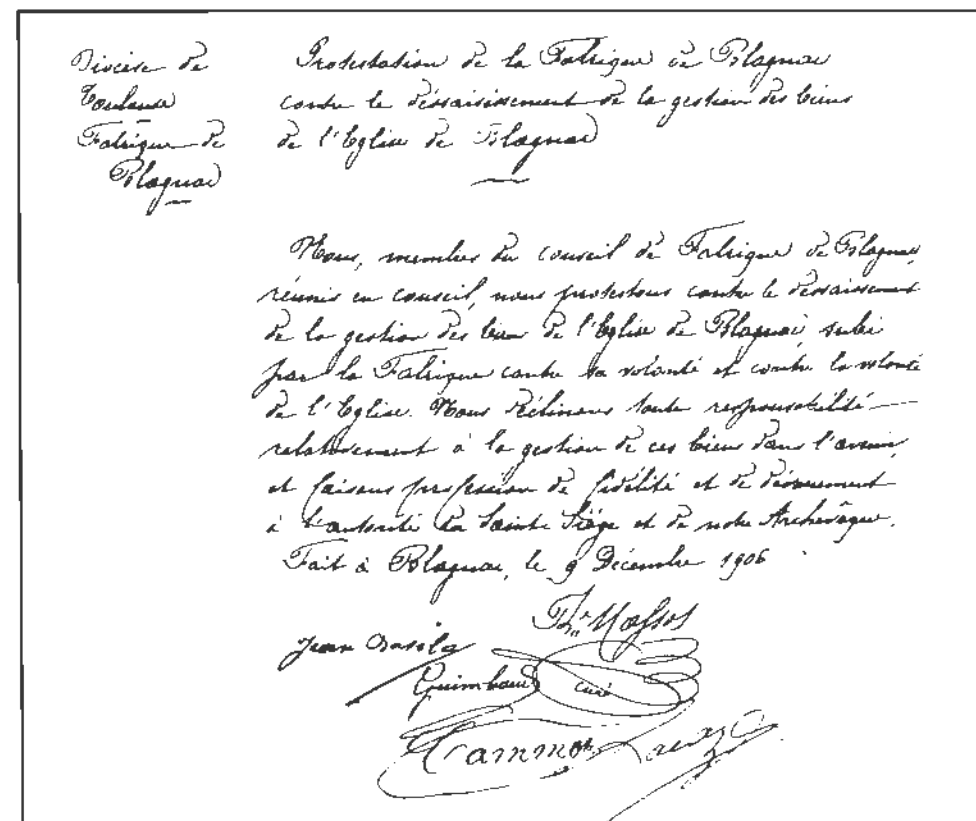 Diocèse de
Toulouse
Fabrique de
Blagnac
Protestation de la Fabrique de Blagnac
contre le dessaisissement de la gestion des biens
de l'Eglise de Blagnac
Nous, membres du conseil de Fabrique de Blagnac,
réunis en conseil, nous protestons contre le dessaisissement
de la gestion des biens de l'Eglise de Blagnac, subi
par la Fabrique contre sa volonté et contre la volonté
de l'Eglise. Nous déclinons toute responsabilité
relativement à la gestion de ces biens dans l'avenir,
et faisons profession de fidélité et de dévouement
à l'autorité du Saint Siège et de notre Archevêque.
Fait à Blagnac, le 9 Décembre 1906
Jean
Guimbaud curé